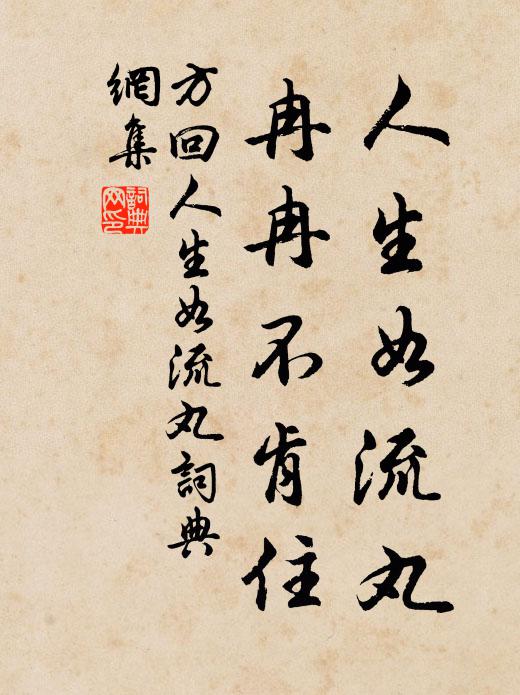 人生如流丸
冉冉不肯住
方回人生如流丸詞典
網集
詞典
网印